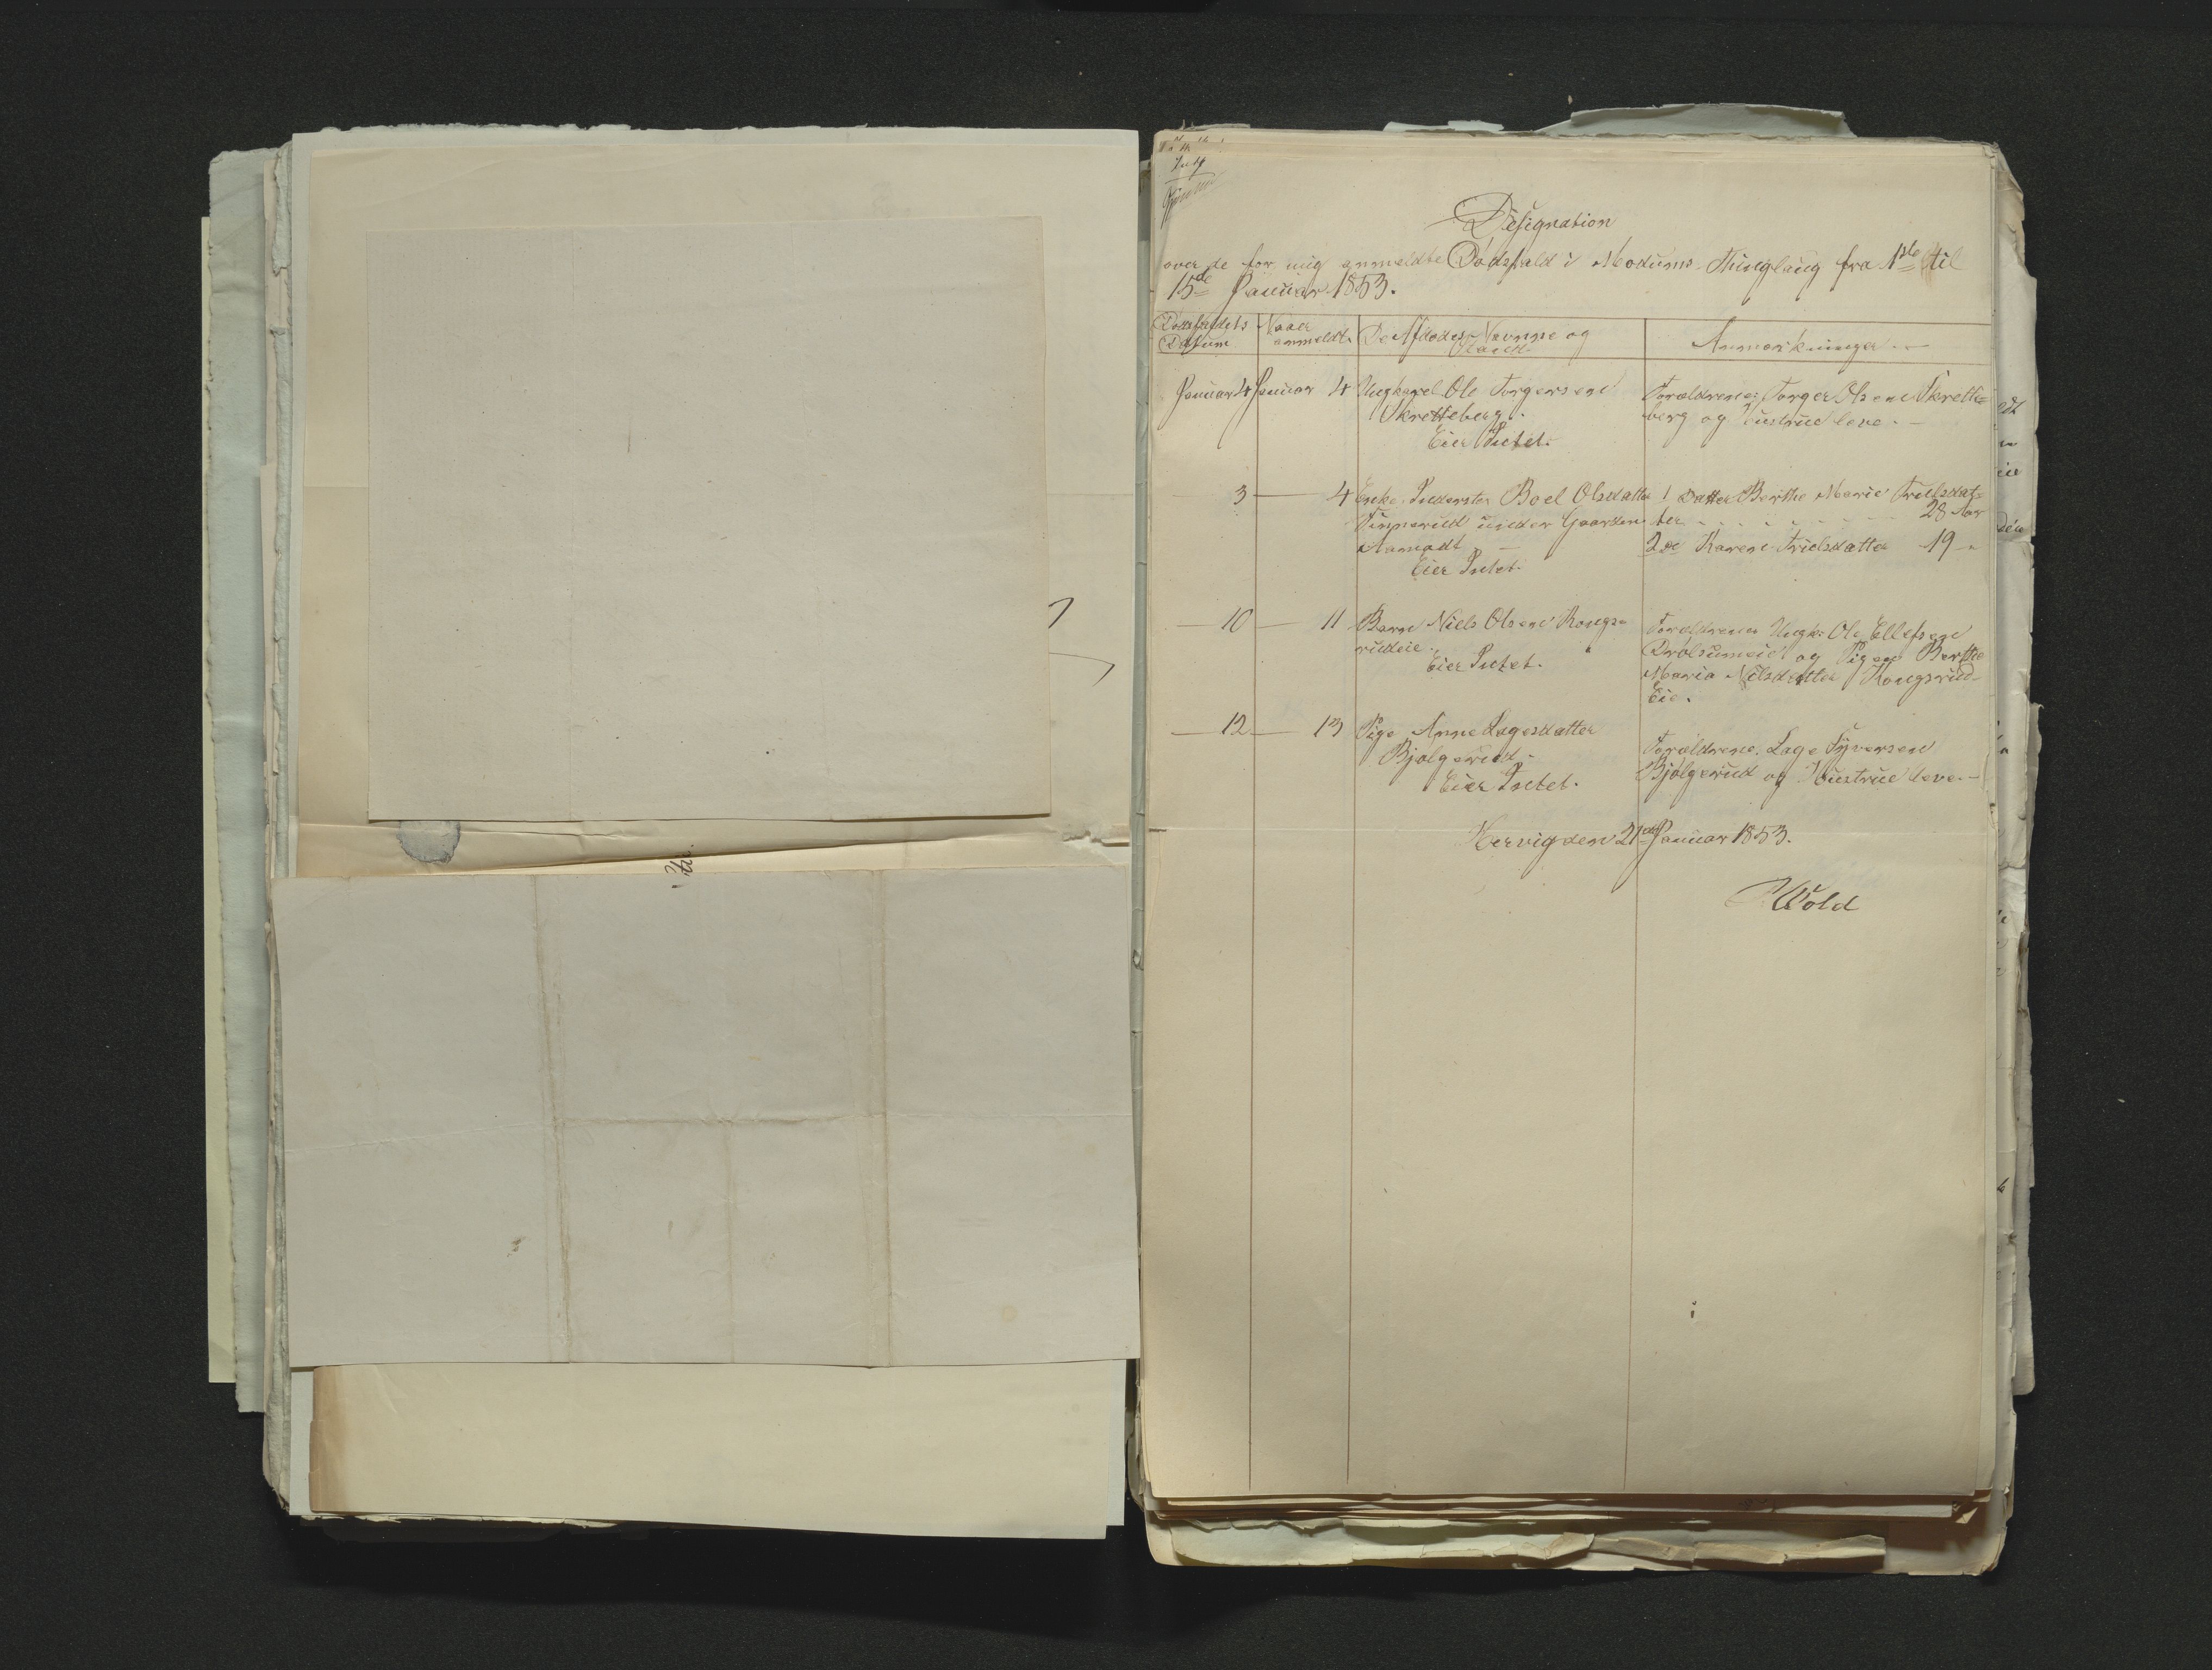 Designation
over de for mig anmeldte Dødsfald i Modums Thinglaug fra 1ste til
15de Januar 1853.
Dødsfaldets Datum
Naar anmeldt.
De Afdødes Navne og
Stand.
Anmærkninger.
Januar 4 Januar 4 Ungkarl Ole Torgersen
Skretteberg.
Eier Intet.
Forældrene: Torger Olsen Skrette=
berg og Hustrue leve. —
3 — 4 Enke Inderster Boel Olsdatter
under Gaarden
Aamodt —
Eier Intet.
1 Datter Berthe Marie Truelsdat=
ter 28 Aar
2 de Karen Truelsdatter 19 "
— 10 — 11 Barn Niels Olsen Kongs=
rudeie.
Eier Intet.
Forældrene Ungk: Ole Ellefsen
Drolsumeie og Pigen Berthe
Maria Nilsdatter Kongsrud=
Eie.
— 12 — 13 Pige Anne Lagesdatter
Bjølgerud.
Eier Intet.
Forældrene: Lage Syversen
Bjølgerud og Hustrue leve. —
Hervig den 21de Januar 1853.
Wold